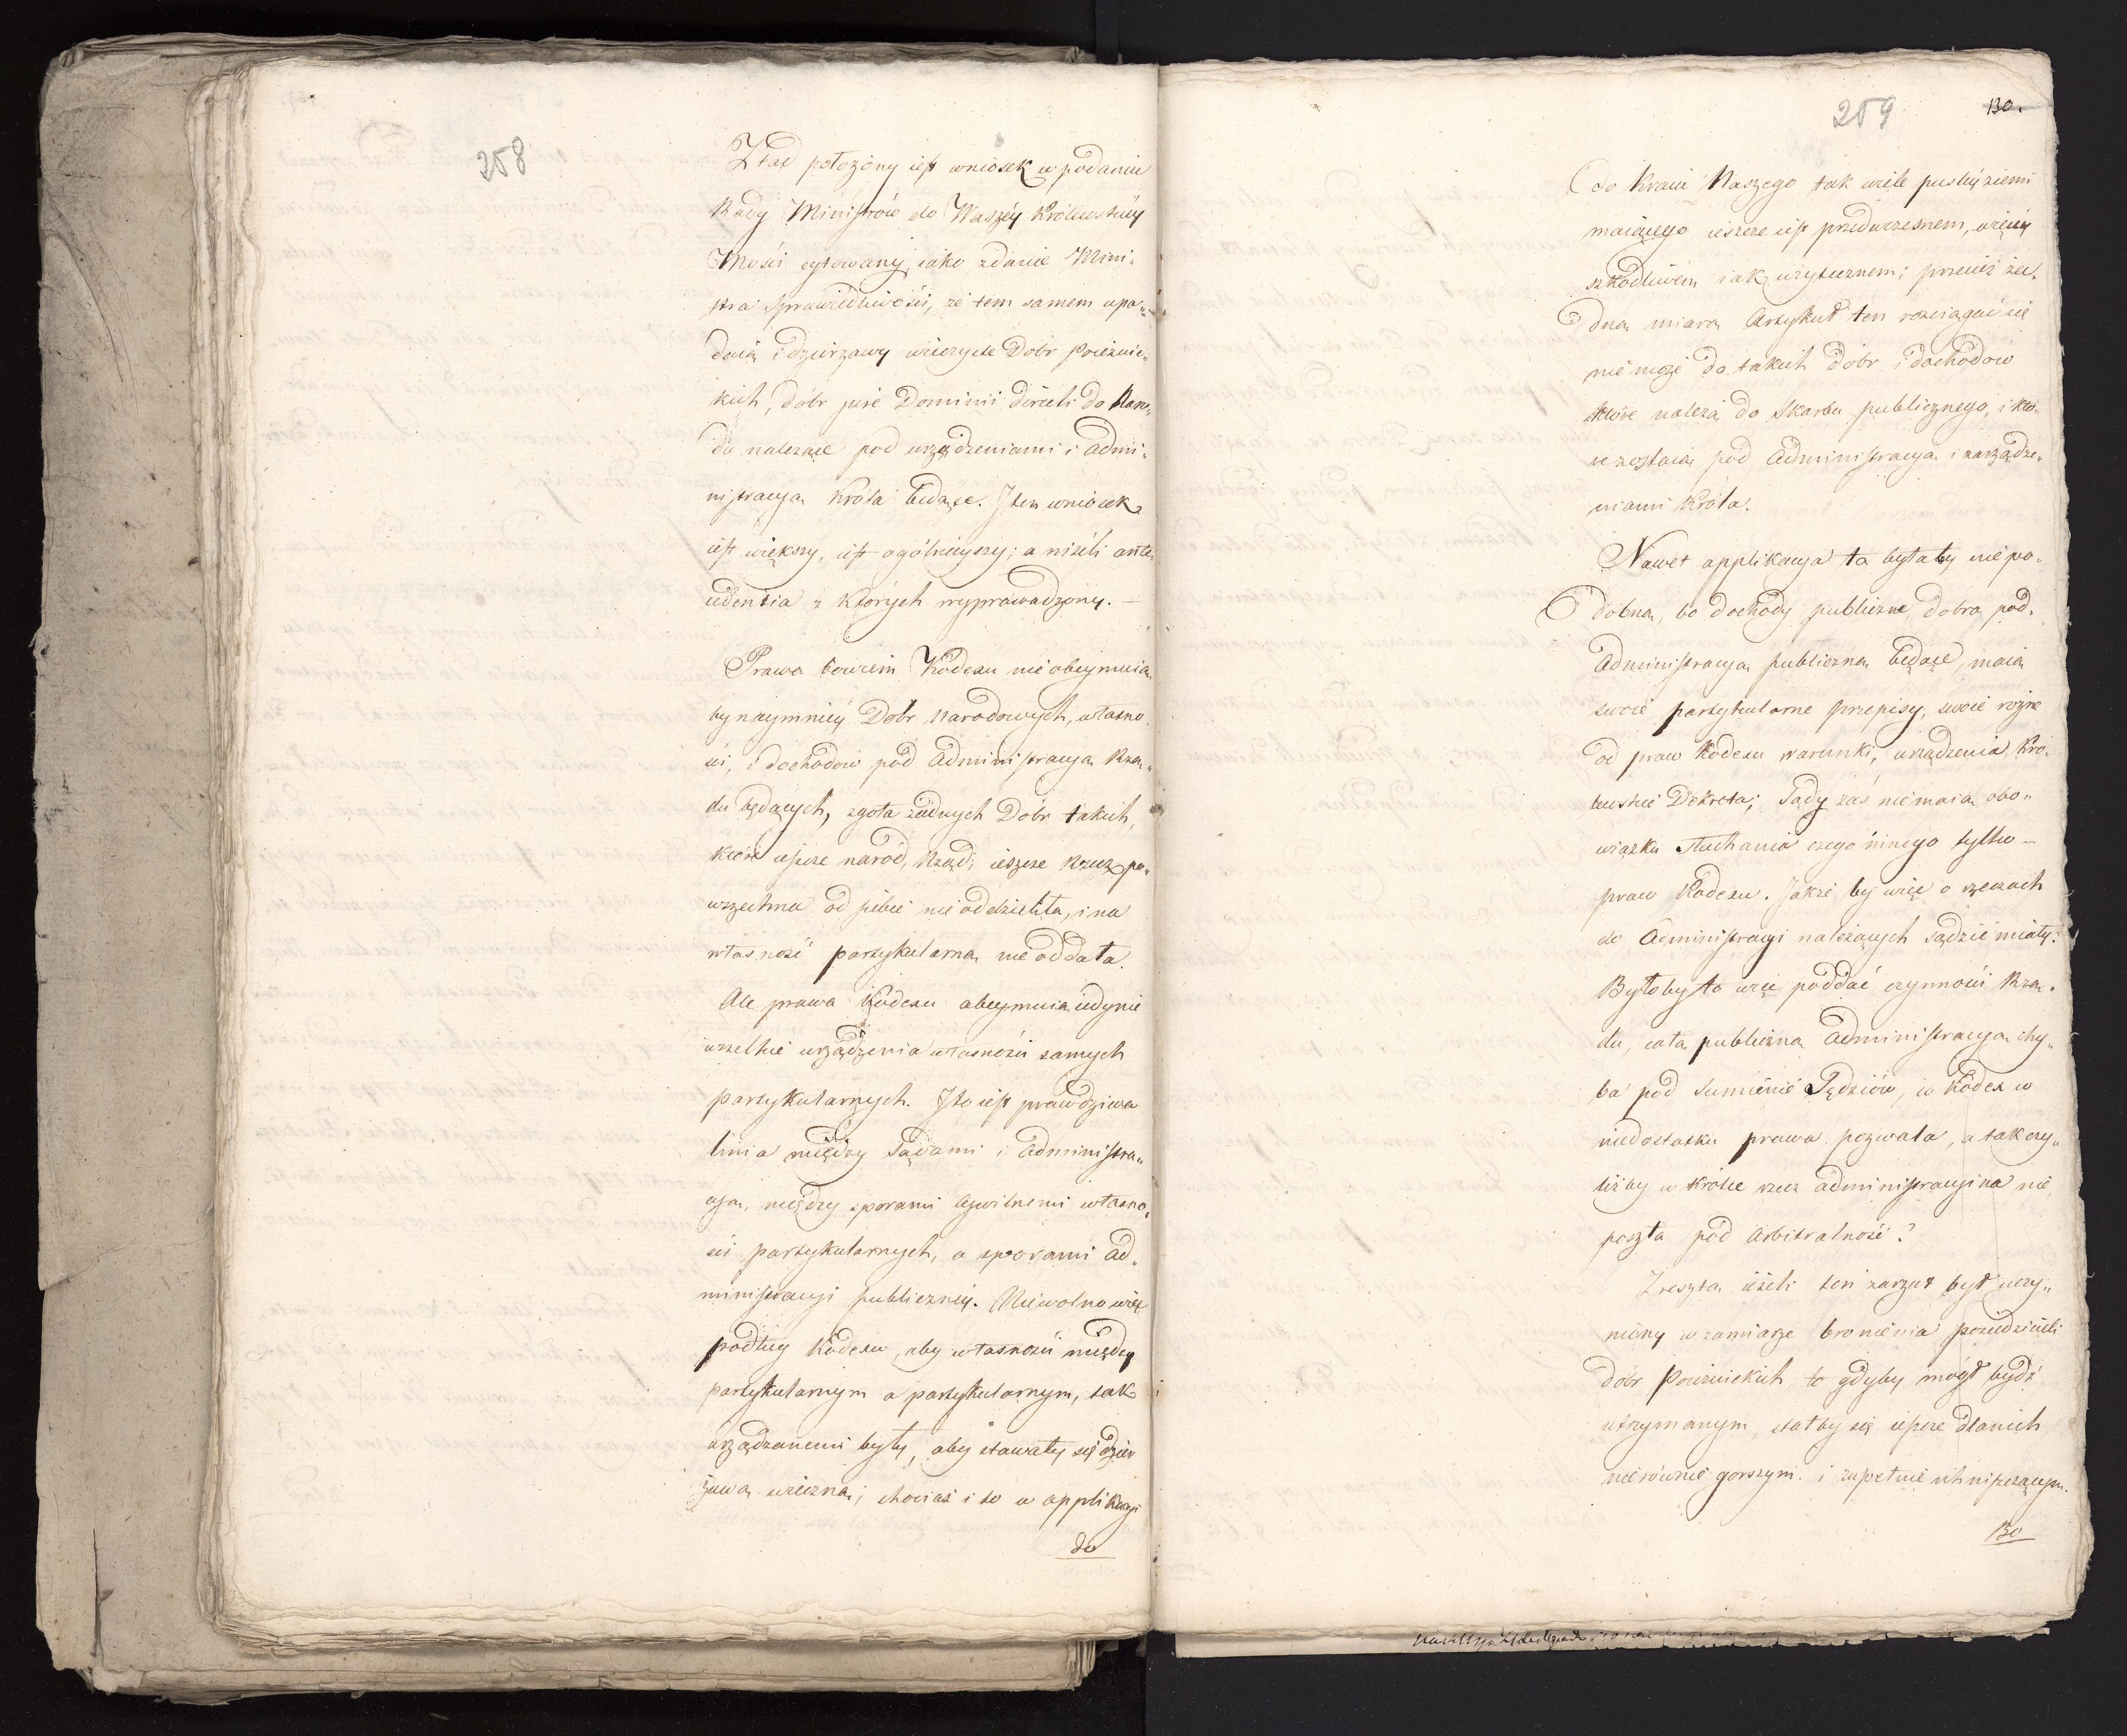 258
Ztąd położony iest wniosek w podaniu
Rady Ministrów do Waszéy Królewskiéy
Mości cytowany, iako zdanie Mini„
stra Sprawiedliwości, że tem samem upa„
daią i dzierżawy wieczyste Dóbr Poiezuic„
kich, dóbr jure Dominii directi do Naro„
du należące pod urządzeniami i Admi„
nistracyą Króla będące. I ten wniosek
iest większy, iest ogólnieyszy; a niżeli ante„
cedentia z których wyprowadzony. —
Prawa bowiem Kodexu nie obeymuią
bynaymniéy Dobr Narodowych, własno„
ści, i dochodów pod Administracyą Rzą„
du będących, zgoła żadnych Dóbr takich,
które ieszcze naród, Rząd, ieszcze Rzecz po„
wszechna od siebie nie oddzieliła, i na
własność partykularną nie oddała.
Ale prawa Kodexu obeymuią iedynie
wszelkie urządzenia własności samych
partykularnych. I to iest prawdziwa
linia między Sądami i Administra„
cyą, między sporami Cywilnemi własno„
ści partykularnych, a sporami Ad„
ministracyi publicznéy. Niewolno więc
podług Kodexu, aby własności między
partykularnym a partykularnym, tak
urządzanemi były, aby stawały się dzier
żawą wieczną; chociaż i to w applikacyi
do
259
130.
do Kraiu Naszego tak wiele pustéy ziemi
maiącego ieszcze iest przedwczesnem, więcéy
szkodliwém iak użytecznem; przecież ża„
dną miarą Artykuł ten rościągać się
nie może do takich dóbr i dochodów
które należą do Skarbu publicznego, i któ„
re zostaią pod Administracyą i zarządze„
niami Króla.
Nawet applikacya ta byłaby niepo„
dobna, bo dochody publiczne, dobra pod
Administracyą publiczną będące, maią
swoie partykularne przepisy, swoie różne
od praw Kodexu warunki, urządzenia, Kró„
lewskie Dekreta; Sądy zaś niemaią obo„
wiązku słuchania czego innego tylko —
praw Kodexu. Jakże by więc o rzeczach
do Administracyi należących sądzić miały?
Byłoby to więc poddać czynności Rzą„
du, całą publiczną Administracyą chy„
ba pod Sumienie Sędziów, co Kodex w
niedostatku prawa pozwala, a tak czy„
liżby w krótce rzecz administracyina nie
poszła pod Arbitralność?
Zresztą ieżeli ten zarzut był uczy„
niony w zamiarze bronienia posiedzicieli
dóbr Poiezuickich to gdyby mógł bydź
utrzymanym, stałby się ieszcze dlanich
nierównie gorszym i zupełnie ich niszczącym.
Bo